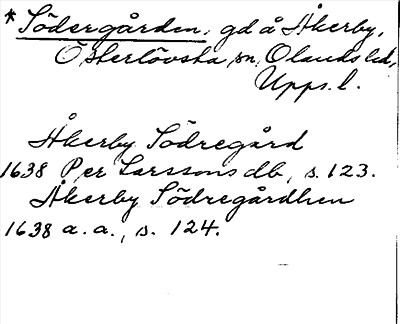 * Södergården, gd å Åkerby,
Österlövsta sn, Olands hd,
Upps. l.
Åkerby Södregård
1638 Per Larssons db, s. 123.
Åkerby Södregårdhen
1638 a. a., s. 124.